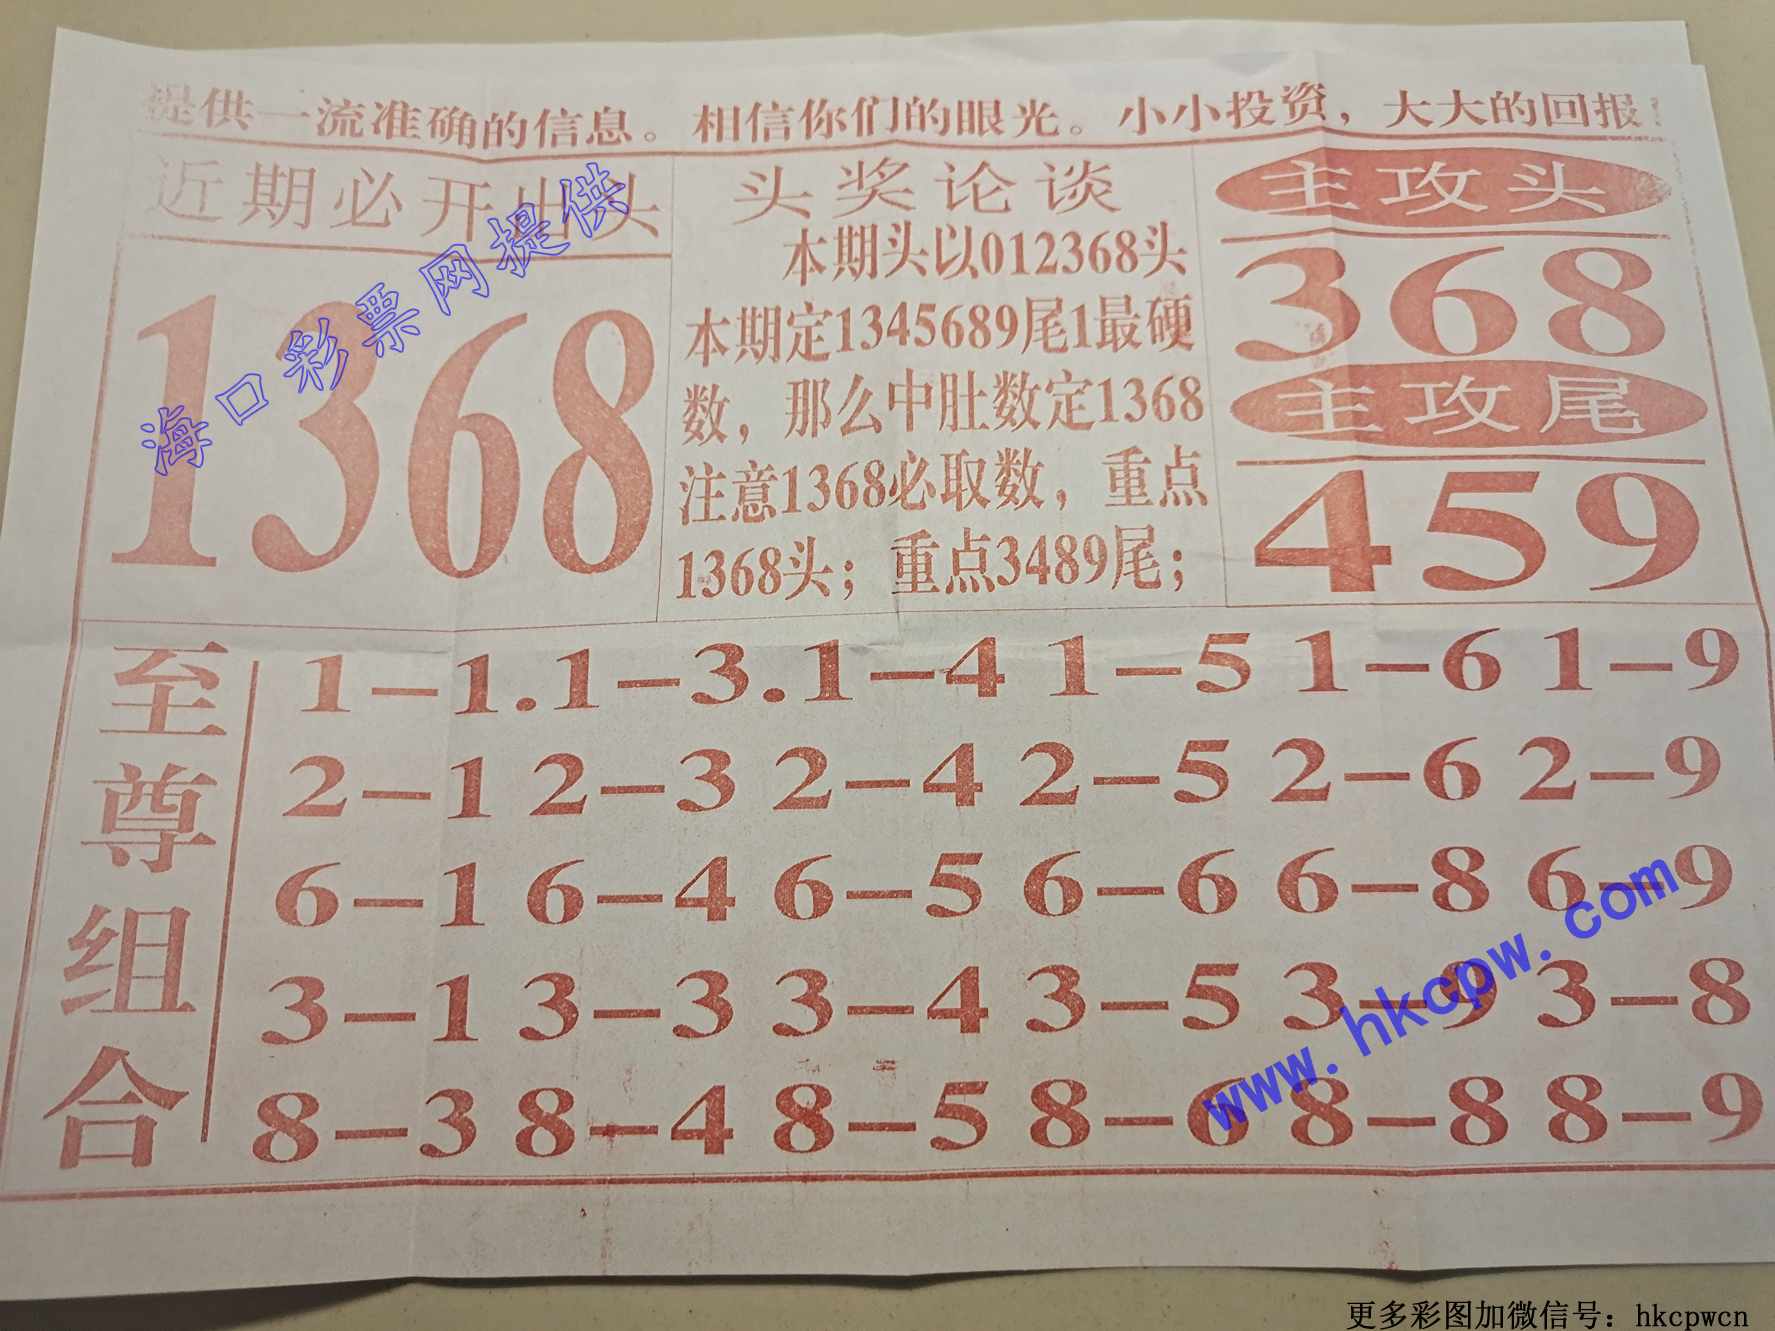 提供一流准确的信息。相信你们的眼光。小小投资，大大的回报！
近期必开出头
1368
头奖论谈
本期头以012368头
本期定1345689尾1最硬
数，那么中肚数定1368
注意1368必取数，重点
1368头；重点3489尾；
主攻头
368
主攻尾
459
至尊组合
1－1.1－3.1－4 1－5 1－6 1－9
2－1 2－3 2－4 2－5 2－6 2－9
6－1 6－4 6－5 6－6 6－8 6－9
3－1 3－3 3－4 3－5 3－9 3－8
8－3 8－4 8－5 8－6 8－8 8－9
海口彩票网提供
www.hkcpw.com
更多彩图加微信号：hkcpwcn